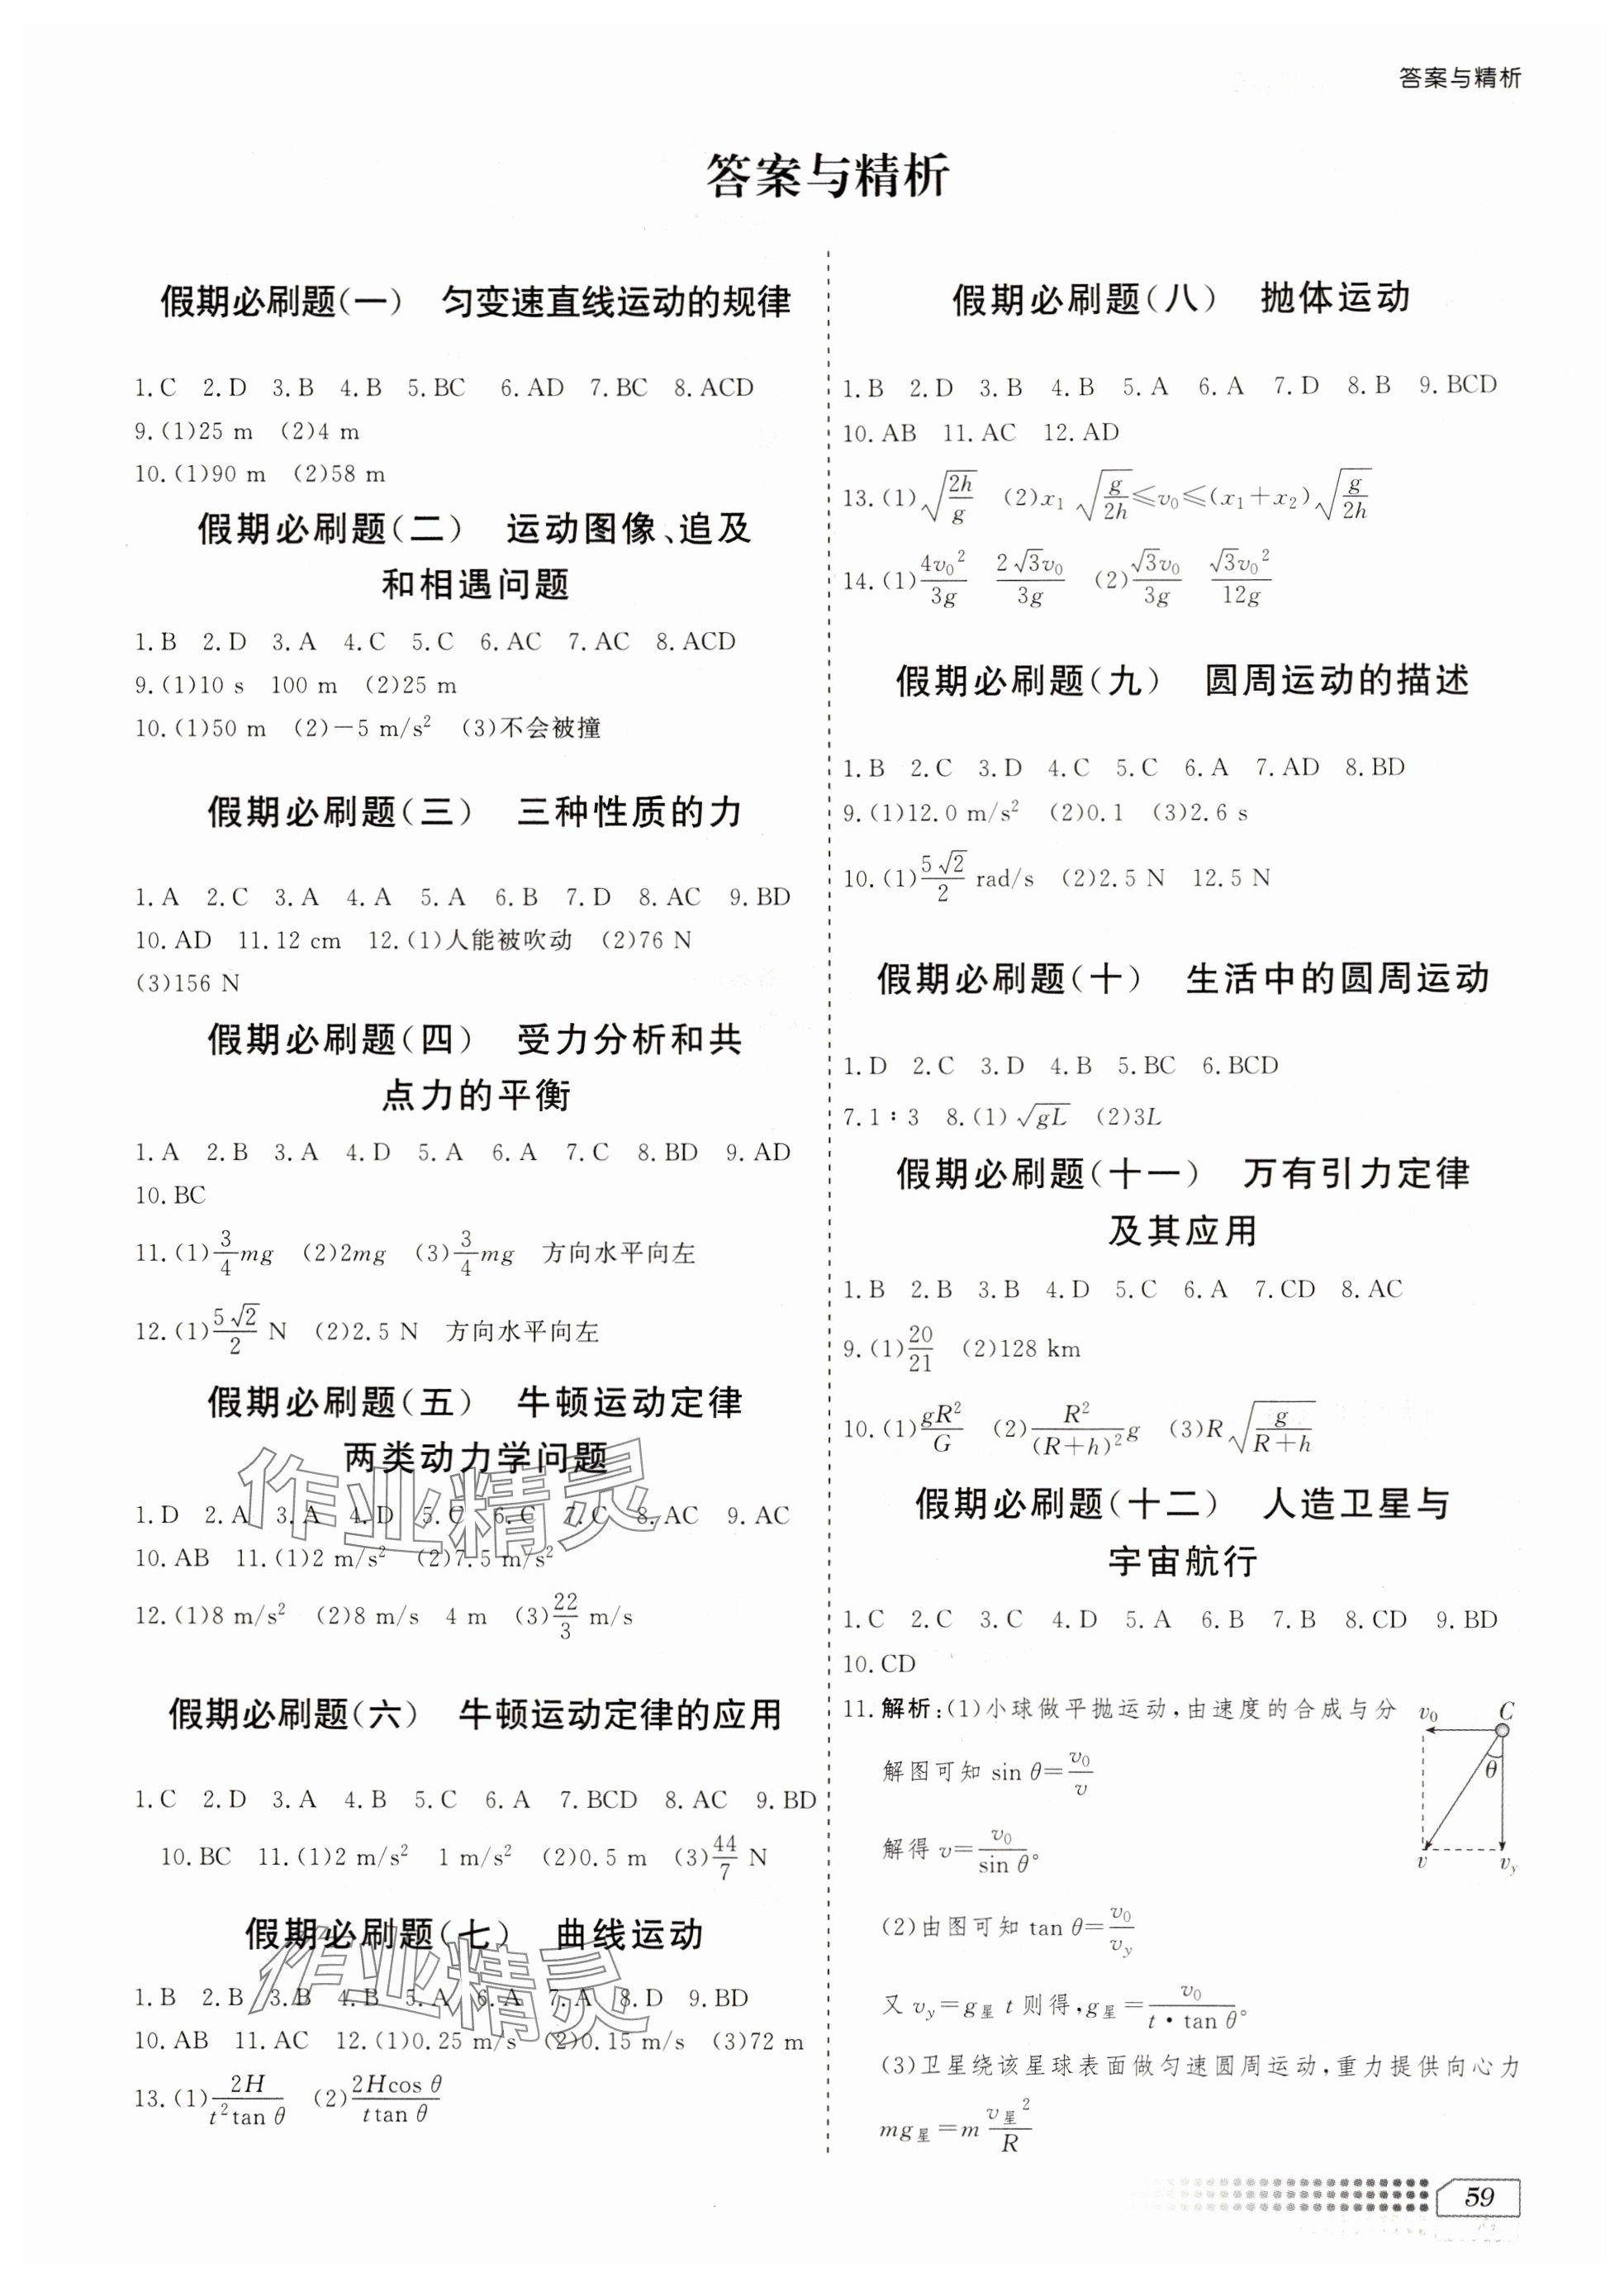 答案与精析
答案与精析
假期必刷题(一) 匀变速直线运动的规律
1.C 2.D 3.B 4.B 5.BC 6.AD 7.BC 8.ACD
9.(1)25 m (2)4 m
10.(1)90 m (2)58 m
假期必刷题(二) 运动图像、追及
和相遇问题
1.B 2.D 3.A 4.C 5.C 6.AC 7.AC 8.ACD
9.(1)10 s 100 m (2)25 m
10.(1)50 m (2)-5 m/s² (3)不会被撞
假期必刷题(三) 三种性质的力
1.A 2.C 3.A 4.A 5.A 6.B 7.D 8.AC 9.BD
10.AD 11.12 cm 12.(1)人能被吹动 (2)76 N
(3)156 N
假期必刷题(四) 受力分析和共
点力的平衡
1.A 2.B 3.A 4.D 5.A 6.A 7.C 8.BD 9.AD
10.BC
11.(1)3/4 mg (2)2mg (3)3/4 mg 方向水平向左
12.(1)5√2/2 N (2)2.5 N 方向水平向左
假期必刷题(五) 牛顿运动定律
两类动力学问题
1.D 2.A 3.A 4.D 5.C 6.C 7.C 8.AC 9.AC
10.AB 11.(1)2 m/s² (2)7.5 m/s²
12.(1)8 m/s² (2)8 m/s 4 m (3)22/3 m/s
假期必刷题(六) 牛顿运动定律的应用
1.C 2.D 3.A 4.B 5.C 6.A 7.BCD 8.AC 9.BD
10.BC 11.(1)2 m/s² 1 m/s² (2)0.5 m (3)44/7 N
假期必刷题(七) 曲线运动
1.B 2.B 3.B 4.B 5.A 6.A 7.A 8.D 9.BD
10.AB 11.AC 12.(1)0.25 m/s (2)0.15 m/s (3)72 m
13.(1)2H/(t²tan θ) (2)2Hcos θ/(ttan θ)
作业精灵
作业精灵
假期必刷题(八) 抛体运动
1.B 2.D 3.B 4.B 5.A 6.A 7.D 8.B 9.BCD
10.AB 11.AC 12.AD
13.(1)√(2h/g) (2)x₁√(g/2h)≤v₀≤(x₁+x₂)√(g/2h)
14.(1)4v₀²/3g 2√3v₀/3g (2)√3v₀/3g √3v₀²/12g
假期必刷题(九) 圆周运动的描述
1.B 2.C 3.D 4.C 5.C 6.A 7.AD 8.BD
9.(1)12.0 m/s² (2)0.1 (3)2.6 s
10.(1)5√2/2 rad/s (2)2.5 N 12.5 N
假期必刷题(十) 生活中的圆周运动
1.D 2.C 3.D 4.B 5.BC 6.BCD
7.1∶3 8.(1)√(gL) (2)3L
假期必刷题(十一) 万有引力定律
及其应用
1.B 2.B 3.B 4.D 5.C 6.A 7.CD 8.AC
9.(1)20/21 (2)128 km
10.(1)gR²/G (2)R²/(R+h)² g (3)R√(g/(R+h))
假期必刷题(十二) 人造卫星与
宇宙航行
1.C 2.C 3.C 4.D 5.A 6.B 7.B 8.CD 9.BD
10.CD
11.解析:(1)小球做平抛运动,由速度的合成与分
解图可知 sin θ=v₀/v
解得 v=v₀/sin θ。
(2)由图可知 tan θ=v₀/v_y
又 v_y=g星 t 则得,g星=v₀/(t·tan θ)。
(3)卫星绕该星球表面做匀速圆周运动,重力提供向心力
mg星=m v星²/R
v₀ C
θ
v v_y
59